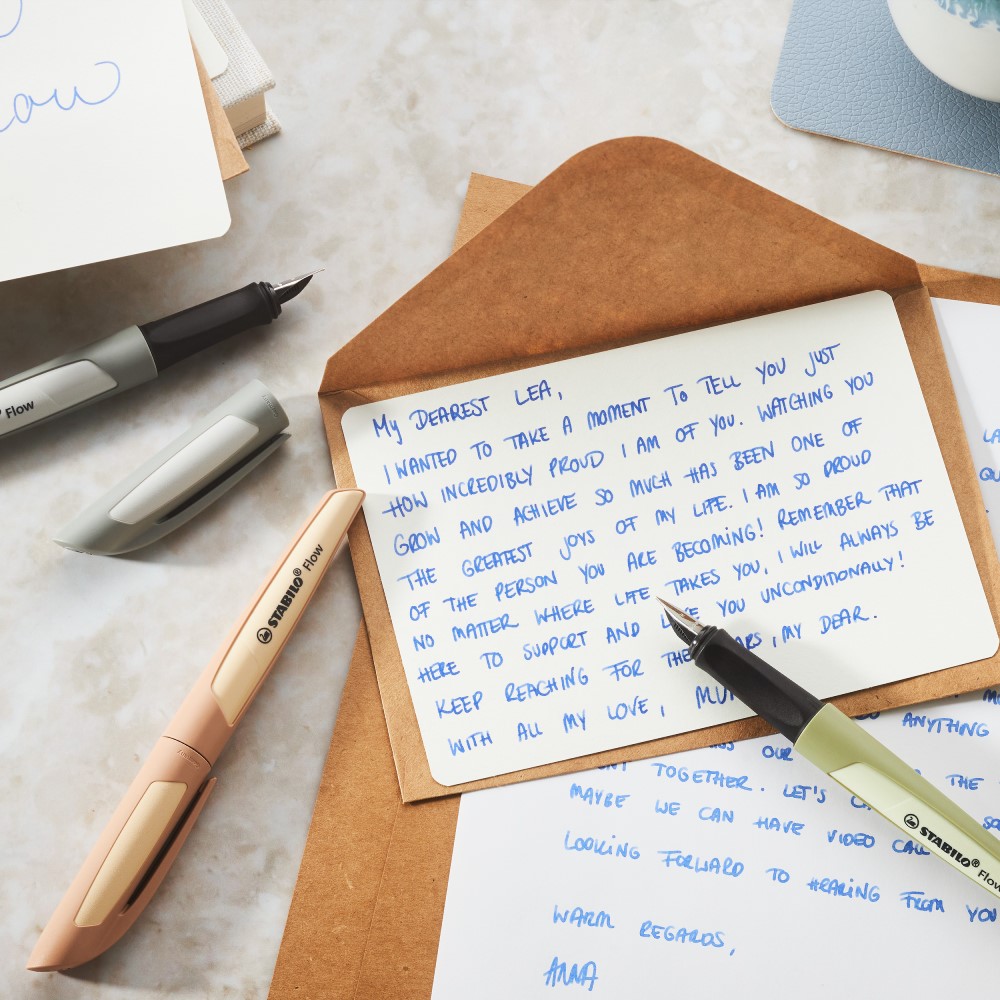 Flow
STABILO® Flow
My DEAREST LEA,
I WANTED TO TAKE A MOMENT TO TELL YOU JUST
HOW INCREDIBLY PROUD I AM OF YOU. WATCHING YOU
GROW AND ACHIEVE SO MUCH HAS BEEN ONE OF
THE GREATEST JOYS OF MY LIFE. I AM SO PROUD
OF THE PERSON YOU ARE BECOMING! REMEMBER THAT
NO MATTER WHERE LIFE TAKES YOU, I WILL ALWAYS BE
HERE TO SUPPORT AND YOU UNCONDITIONALLY!
KEEP REACHING FOR THE , MY DEAR.
WITH ALL MY LOVE,
STABILO® Flow
ANYTHING
OUR THE
TOGETHER. LET'S
MAYBE WE CAN HAVE VIDEO CALL
LOOKING FORWARD TO HEARING FROM YOU
WARM REGARDS,
ANNA